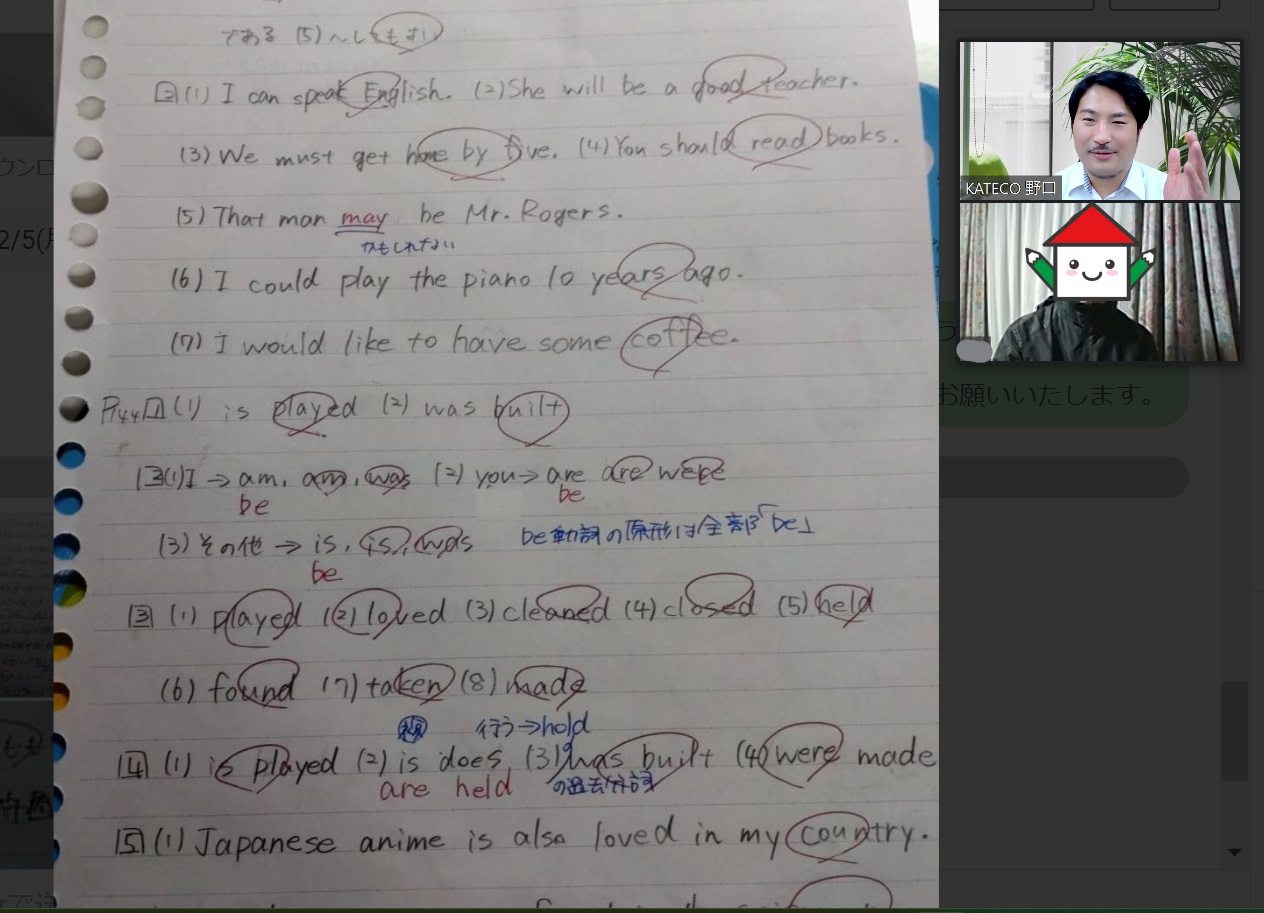 である (5)～してもよい
2 (1) I can speak English. (2) She will be a good teacher.
(3) We must get home by five. (4) You should read books.
(5) That man may be Mr. Rogers.
かもしれない
(6) I could play the piano 10 years ago.
(7) I would like to have some coffee.
P144 1 (1) is played (2) was built
2 (1) I → am, am, was (2) you → are are were
be be
(3) その他 → is, is, was be動詞の原形は全部「be」
be
3 (1) played (2) loved (3) cleaned (4) closed (5) held
(6) found (7) taken (8) made
行う→hold
4 (1) is played (2) is does, (3) was built (4) were made
are held の過去分詞
5 (1) Japanese anime is also loved in my country.
KATECO 野口
ウンロ
2/5(
お願いいたします。